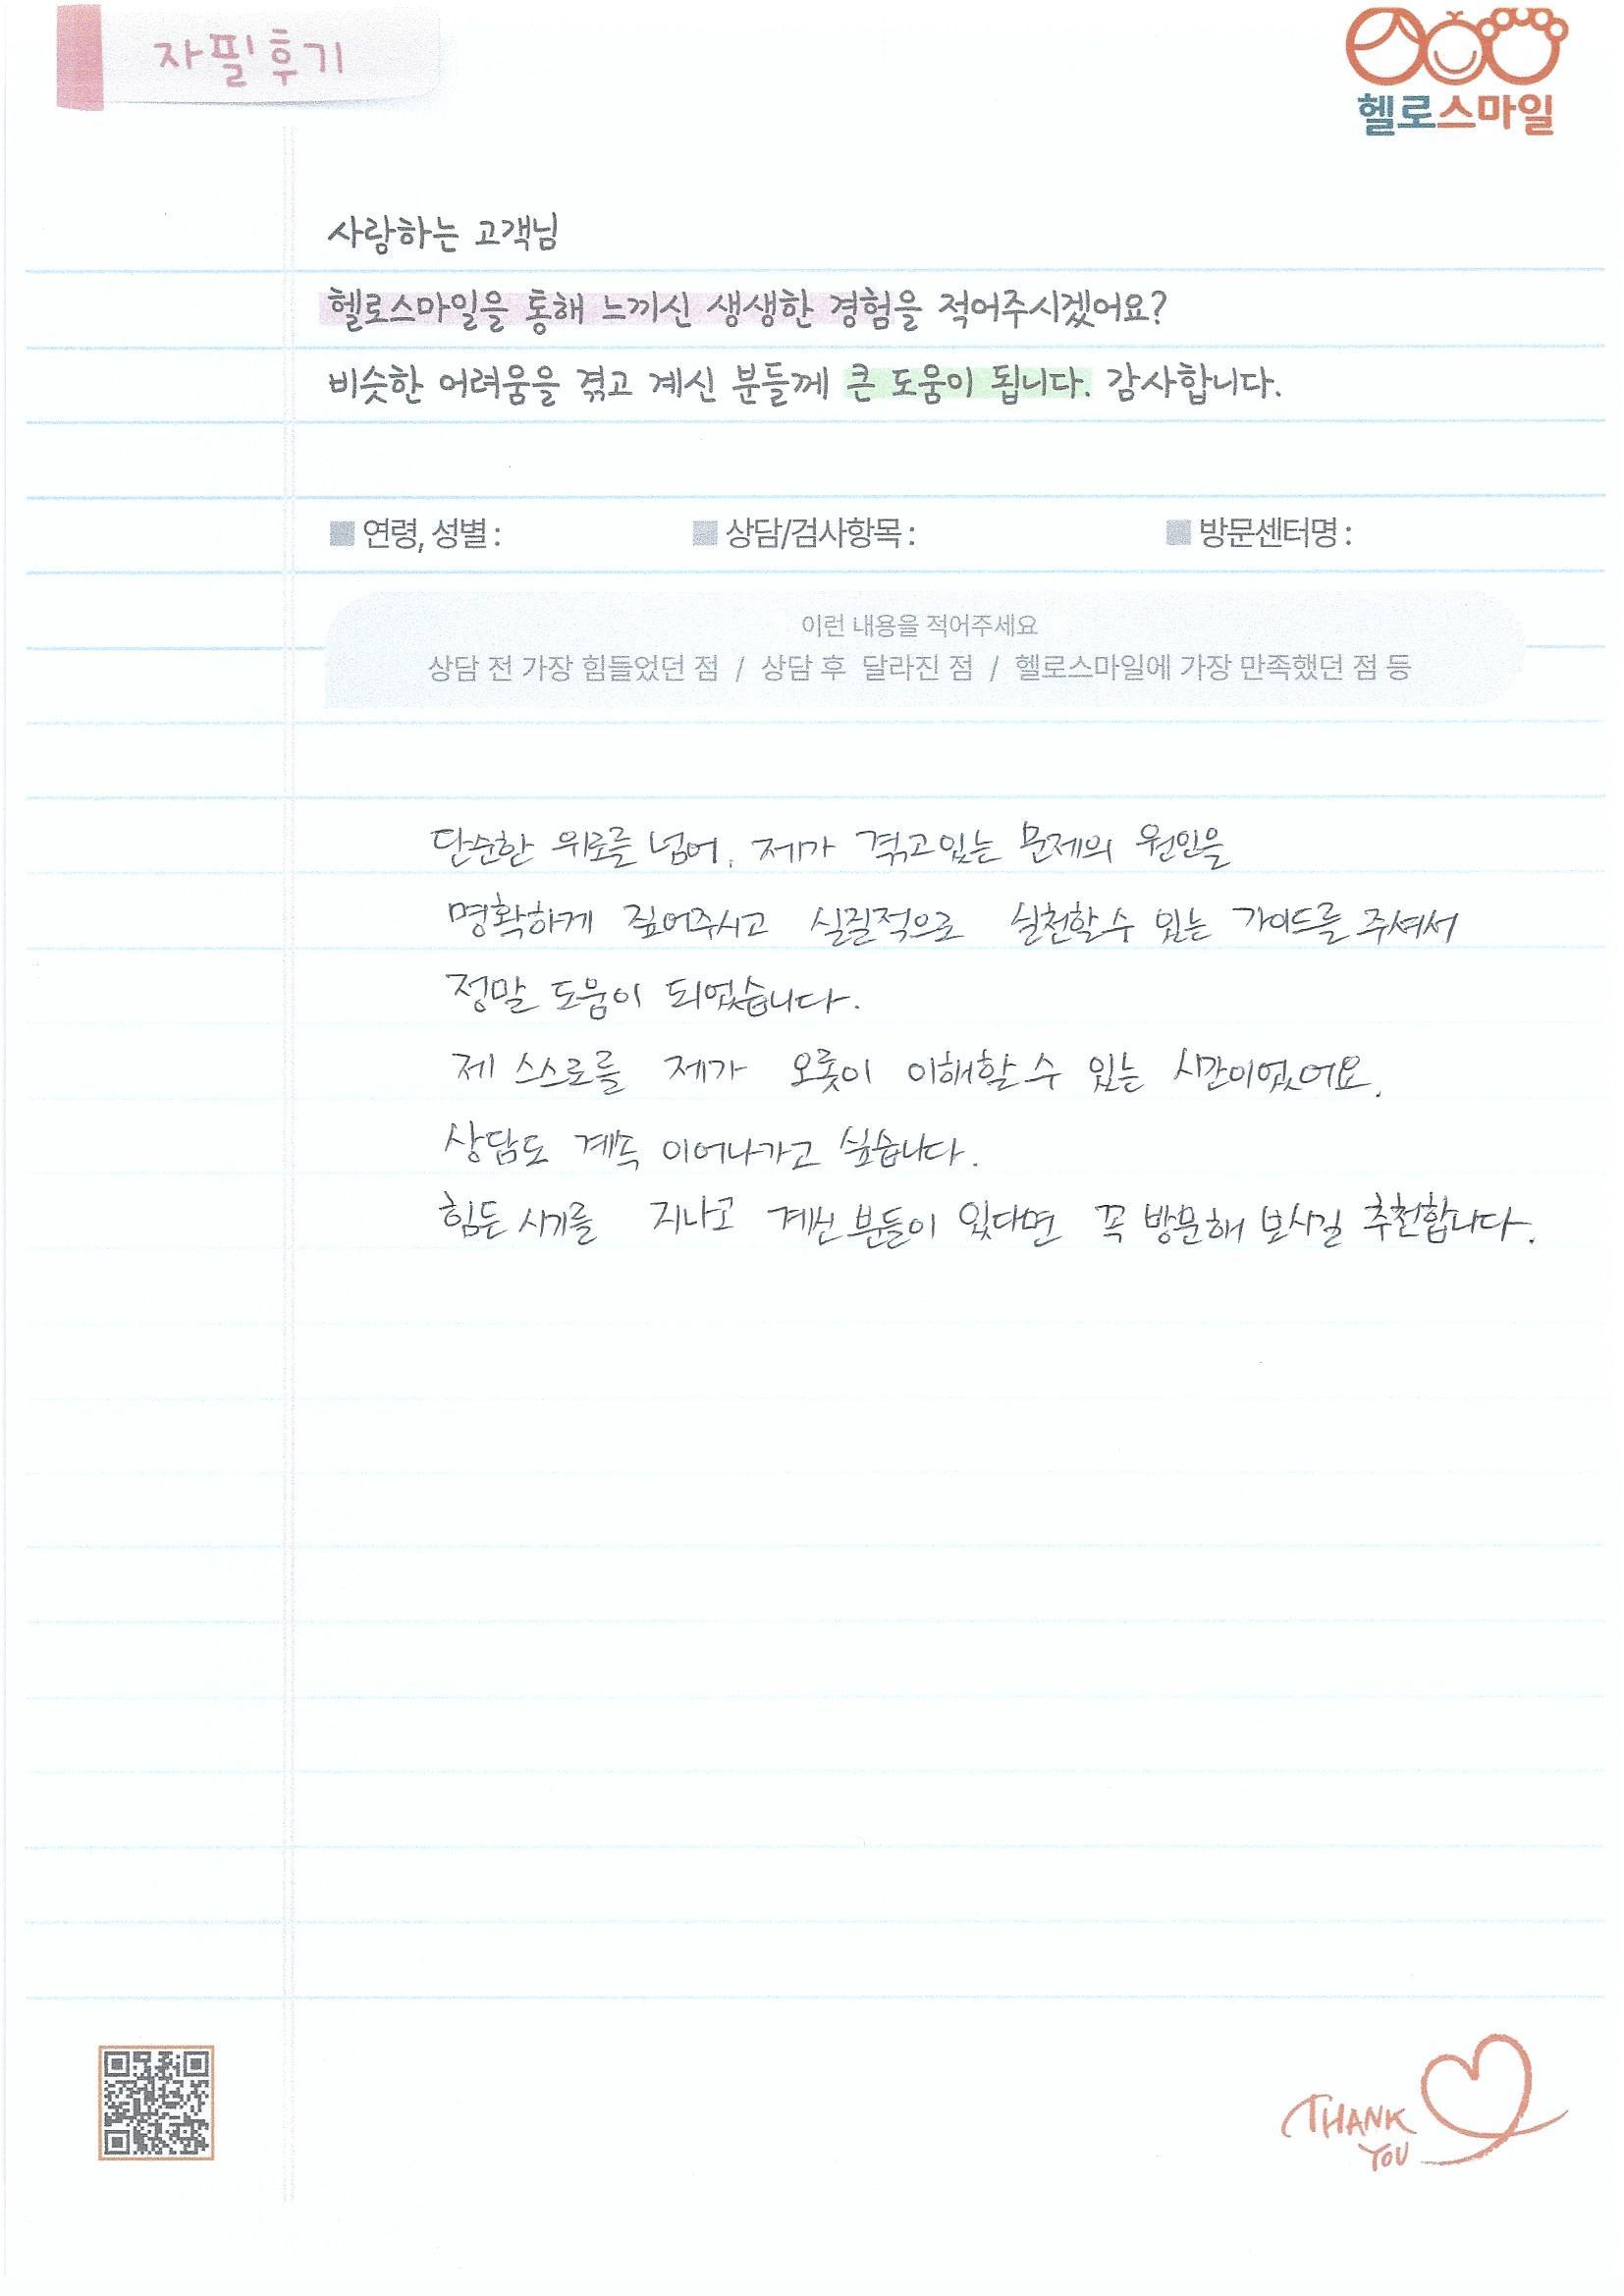 자필후기
헬로스마일
사랑하는 고객님
헬로스마일을 통해 느끼신 생생한 경험을 적어주시겠어요?
비슷한 어려움을 겪고 계신 분들께 큰 도움이 됩니다. 감사합니다.
■ 연령, 성별 : ■ 상담/검사항목 : ■ 방문센터명 :
이런 내용을 적어주세요
상담 전 가장 힘들었던 점 / 상담 후 달라진 점 / 헬로스마일에 가장 만족했던 점 등
단순한 위로를 넘어, 제가 겪고있는 문제의 원인을
명확하게 짚어주시고 실질적으로 실천할 수 있는 가이드를 주셔서
정말 도움이 되었습니다.
제 스스로를 제가 오롯이 이해할 수 있는 시간이었어요.
상담도 계속 이어나가고 싶습니다.
힘든 시기를 지나고 계신 분들이 있다면 꼭 방문해 보시길 추천합니다.
THANK
YOU